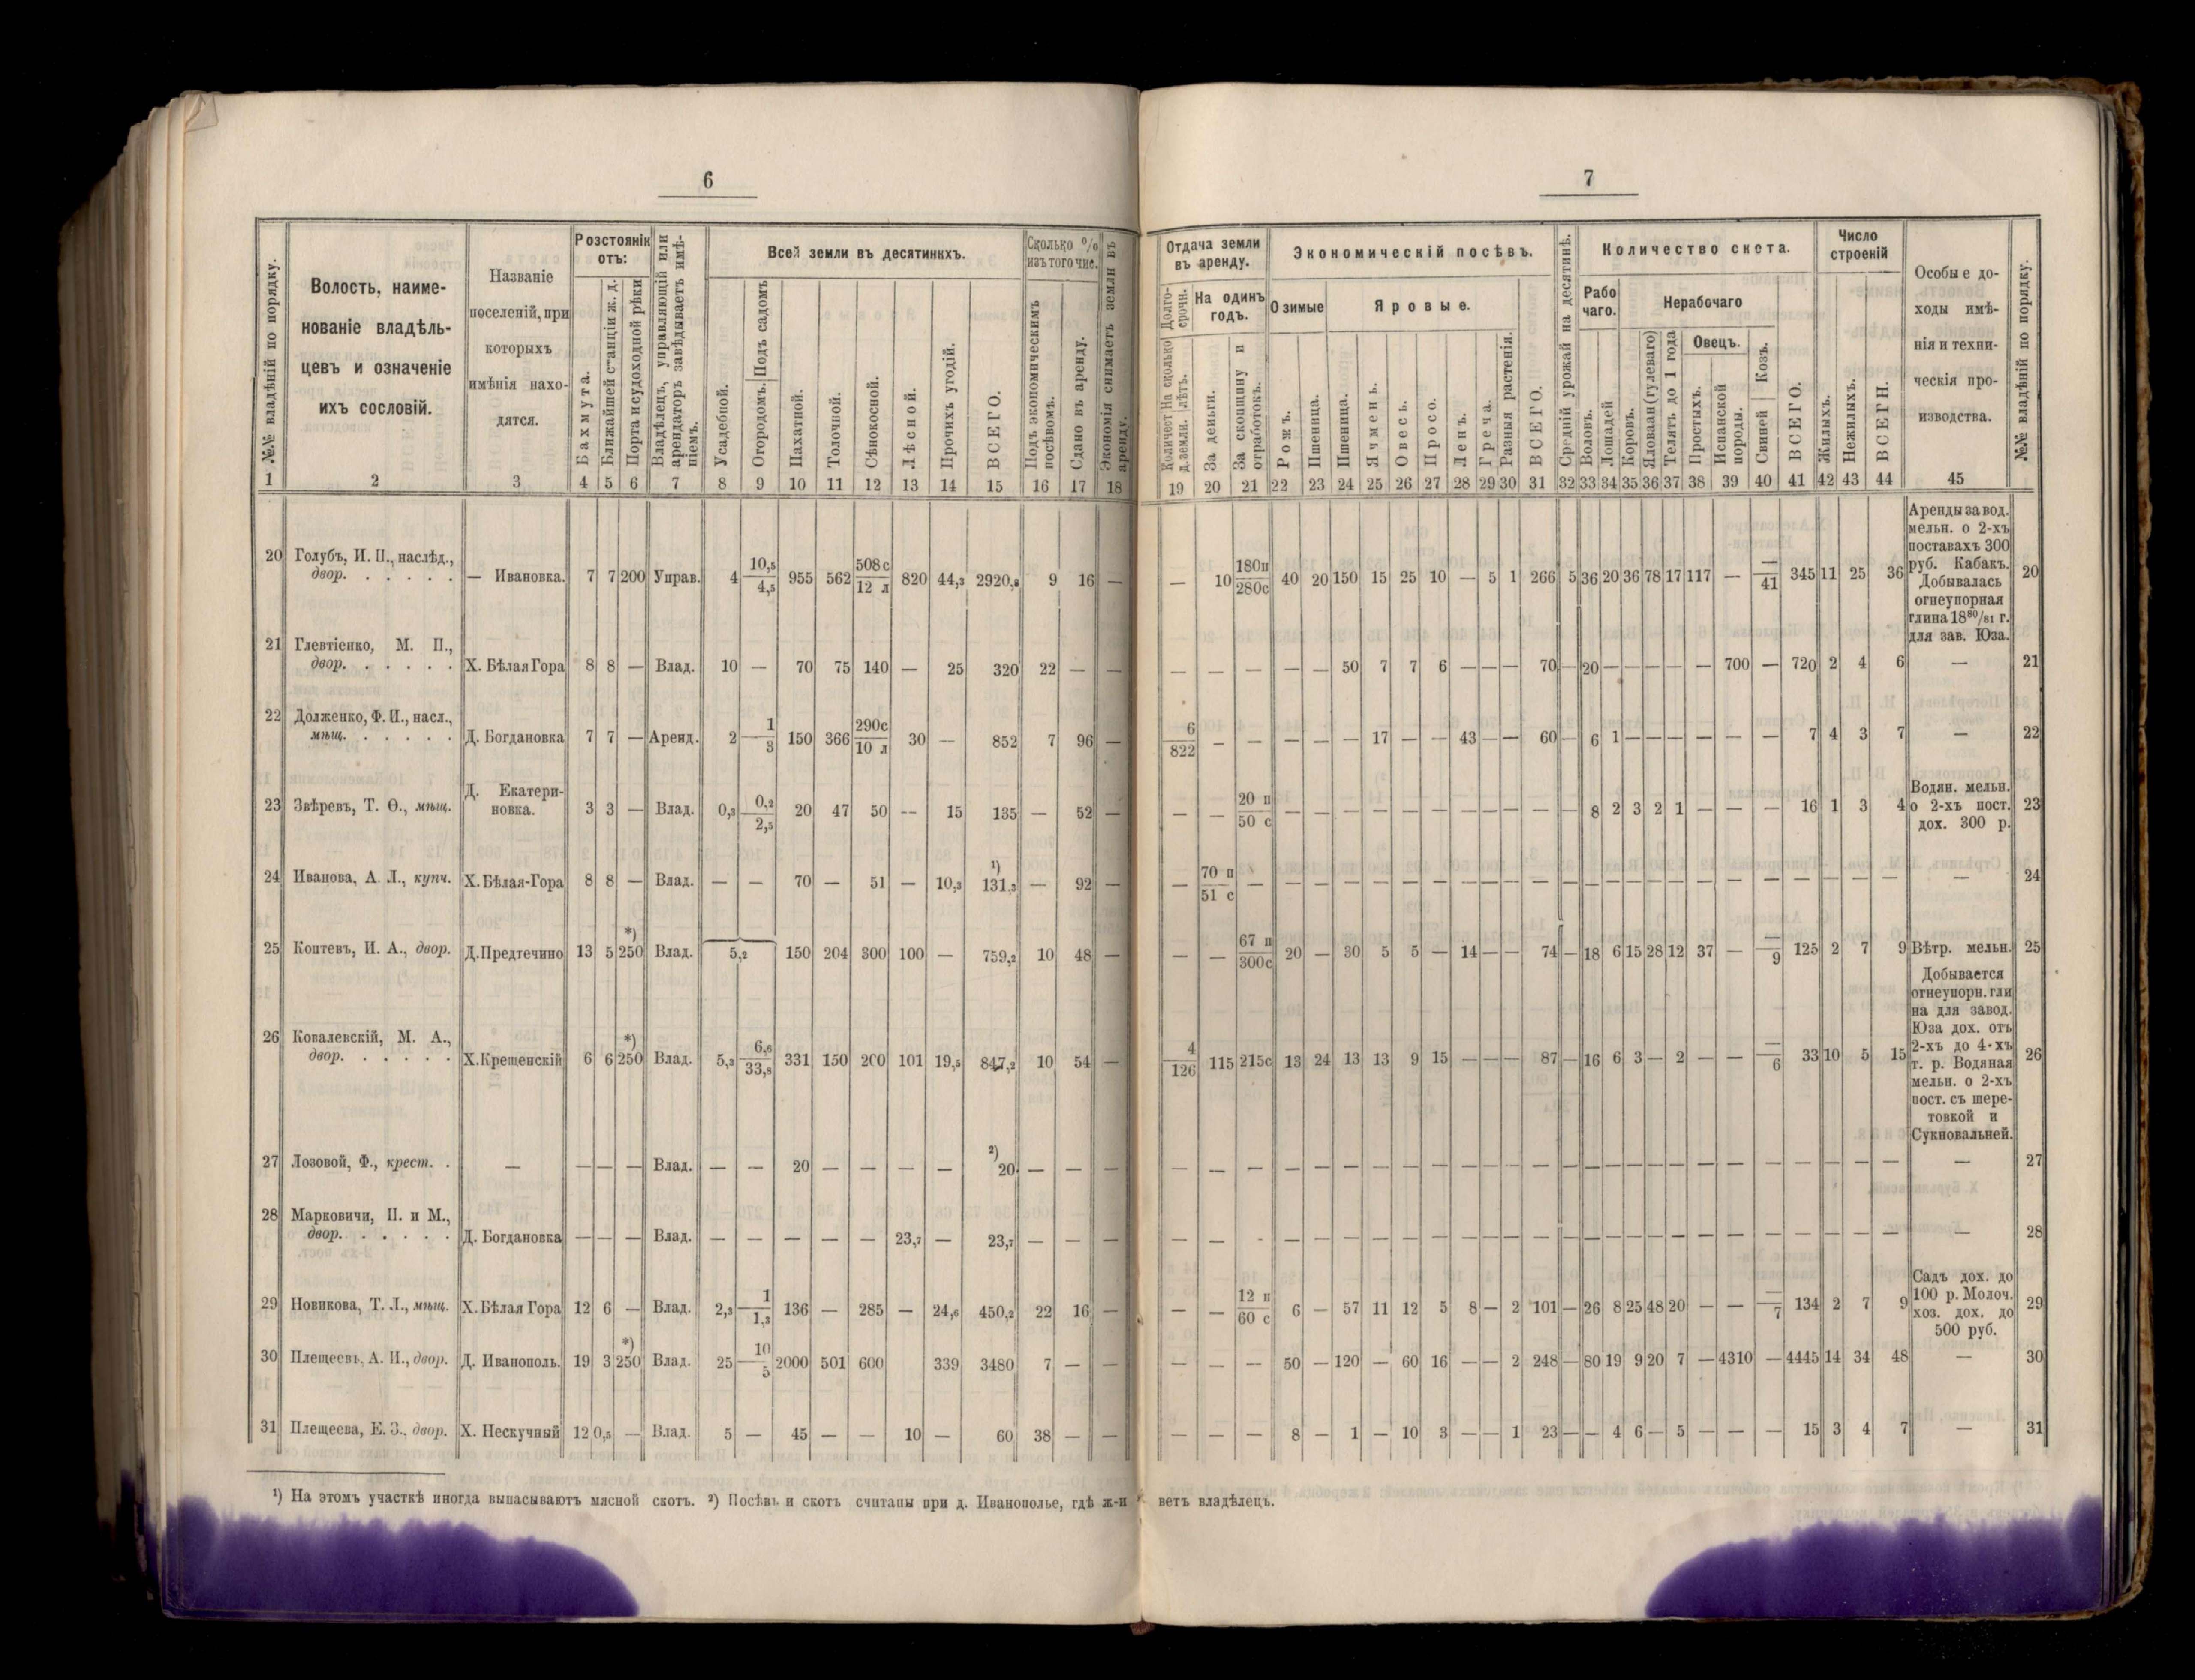 6
№№ владѣній по порядку.
Волость, наиме-
нованіе владѣль-
цевъ и означеніе
ихъ сословій.
Названіе
поселеній, при
которыхъ
имѣнія нахо-
дятся.
Розстояніи
отъ:
Бахмута.
Ближайшей станціи ж. д.
Порта и судоходной рѣки
Владѣлецъ, управляющій или
арендаторъ завѣдываетъ имѣ-
ніемъ.
Всей земли въ десятинкхъ.
Усадебной.
Огородомъ. Подъ садомъ
Пахатной.
Толочной.
Сѣнокосной.
Лѣсной.
Прочихъ угодій.
ВСЕГО.
Сколько %
изъ того чис.
Подъ экономическимъ
посѣвомъ.
Сдано въ аренду.
Экономія снимаетъ земли въ
аренду.
1 2 3 4 5 6 7 8 9 10 11 12 13 14 15 16 17 18
20 Голубъ, И. П., наслѣд.,
двор. . . . . . — Ивановка. 7 7 200 Управ. 4 10,5/4,5 955 562 508 с/12 л 820 44,3 2920,8 9 16 —
21 Глевтіенко, М. П.,
двор. . . . . . Х. Бѣлая Гора 8 8 — Влад. 10 — 70 75 140 — 25 320 22 — —
22 Долженко, Ф. И., насл.,
мѣщ. . . . . . Д. Богдановка 7 7 — Аренд. 2 1/3 150 366 290с/10 л 30 — 852 7 96 —
23 Звѣревъ, Т. Ѳ., мѣщ. Д. Екатери-
новка. 3 3 — Влад. 0,3 0,2/2,5 20 47 50 — 15 135 — 52 —
24 Иванова, А. Л., купч. Х. Бѣлая-Гора 8 8 — Влад. — — 70 — 51 — 10,3 ¹) 131,3 — 92 —
25 Коптевъ, И. А., двор. Д. Предтечино 13 5 *) 250 Влад. 5,2 150 204 300 100 — 759,2 10 48 —
26 Ковалевскій, М. А.,
двор. . . . . . Х. Крещенскій 6 6 *) 250 Влад. 5,3 6,6/33,8 331 150 200 101 19,5 847,2 10 54 —
27 Лозовой, Ф., крест. . — — — — Влад. — — 20 — — — — ²) 20 — — —
28 Марковичи, П. и М.,
двор. . . . . . Д. Богдановка — — — Влад. — — — — — 23,7 — 23,7 — — —
29 Новикова, Т. Л., мѣщ. Х. Бѣлая Гора 12 6 — Влад. 2,3 1/1,3 136 — 285 — 24,6 450,2 22 16 —
30 Плещеевъ, А. И., двор. Д. Иванополь. 19 3 *) 250 Влад. 25 10/5 2000 501 600 339 3480 7 — —
31 Плещеева, Е. З., двор. Х. Нескучный 12 0,5 — Влад. 5 — 45 — — 10 — 60 38 — —
¹) На этомъ участкѣ иногда выпасываютъ мясной скотъ. ²) Посѣвъ и скотъ считаны при д. Иванополье, гдѣ ж-и
7
Отдача земли
въ аренду.
Долго-
срочн.
Количест На сколько
д. земли. лѣтъ.
На одинъ
годъ.
За деньги.
За скопщину и
отработокъ.
Экономическій посѣвъ.
Озимые
Рожъ.
Пшеница.
Яровые.
Пшеница.
Ячмень.
Овесъ.
Просо.
Ленъ.
Греча.
Разныя растенія.
ВСЕГО.
Средній урожай на десятинѣ.
Количество скота.
Рабо
чаго.
Воловъ.
Лошадей
Нерабочаго
Коровъ.
Яловаан (гулеваго)
Телятъ до 1 года
Овецъ.
Простыхъ.
Испанской
породы.
Свиней Козъ.
ВСЕГО.
Число
строеній
Жилыхъ.
Нежилыхъ.
ВСЕГН.
Особые до-
ходы имѣ-
нія и техни-
ческія про-
изводства.
№№ владѣній по порядку.
19 20 21 22 23 24 25 26 27 28 29 30 31 32 33 34 35 36 37 38 39 40 41 42 43 44 45
— 10 180п/280с 40 20 150 15 25 10 — 5 1 266 5 36 20 36 78 17 117 — —/41 345 11 25 36 20
Аренды за вод.
мельн. о 2-хъ
поставахъ 300
руб. Кабакъ.
Добывалась
огнеупорная
глина 18⁸⁰/₈₁ г.
для зав. Юза.
— — — — — 50 7 7 6 — — — 70 — 20 — — — — — 700 — 720 2 4 6 — 21
6/822 — — — — — 17 — — 43 — — 60 — 6 1 — — — — — — 7 4 3 7 — 22
— — 20 п/50 с — — — — — — — — — — — 8 2 3 2 1 — — — 16 1 3 4 23
Водян. мельн.
о 2-хъ пост.
дох. 300 р.
— 70 п/51 с — — — — — — — — — — — — — — — — — — — — — — — — — 24
— — 67 п/300с 20 — 30 5 5 — 14 — — 74 — 18 6 15 28 12 37 — —/9 125 2 7 9 Вѣтр. мельн. 25
4/126 115 215с 13 24 13 13 9 15 — — — 87 — 16 6 3 — 2 — — —/6 33 10 5 15 26
Добывается
огнеупорн. гли
на для завод.
Юза дох. отъ
2-хъ до 4-хъ
т. р. Водяная
мельн. о 2-хъ
пост. съ шере-
товкой и
Сукновальней.
— — — — — — — — — — — — — — — — — — — — — — — — — — — 27
— — - — — — — — — — — — — — — — — — — — — — — — — — — 28
— — 12 п/60 с 6 — 57 11 12 5 8 — 2 101 — 26 8 25 48 20 — — —/7 134 2 7 9 29
Садъ дох. до
100 р. Молоч.
хоз. дох. до
500 руб.
— — — 50 — 120 — 60 16 — — 2 248 — 80 19 9 20 7 — 4310 — 4445 14 34 48 — 30
— — — 8 — 1 — 10 3 — — 1 23 — — 4 6 — 5 — — — 15 3 4 7 — 31
ветъ владѣлецъ.